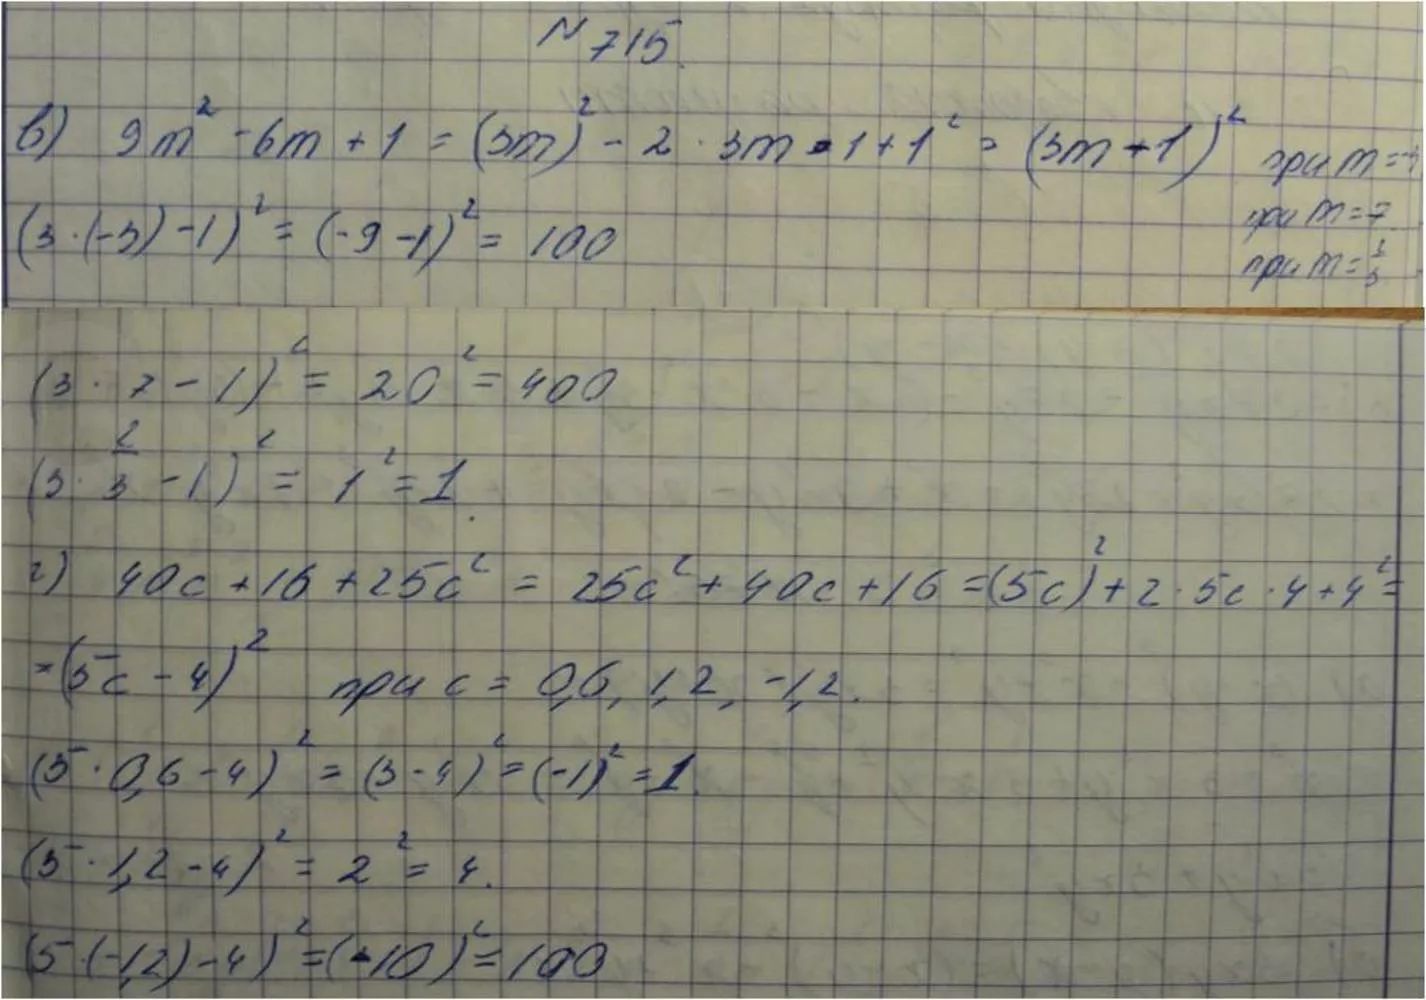 N 715.
в) 9m² - 6m + 1 = (3m)² - 2 · 3m · 1 + 1² = (3m - 1)² при m =
(3 · (-3) - 1)² = (-9 - 1)² = 100 при m = 7
при m =
(3 · 7 - 1)² = 20² = 400
(3 · 2/3 - 1)² = 1² = 1.
г) 40c + 16 + 25c² = 25c² + 40c + 16 = (5c)² + 2 · 5c · 4 + 4² =
= (5c - 4)² при c = 0,6, 1,2, -1,2.
(5 · 0,6 - 4)² = (3 - 4)² = (-1)² = 1.
(5 · 1,2 - 4)² = 2² = 4.
(5 · (-1,2) - 4)² = (-10)² = 100